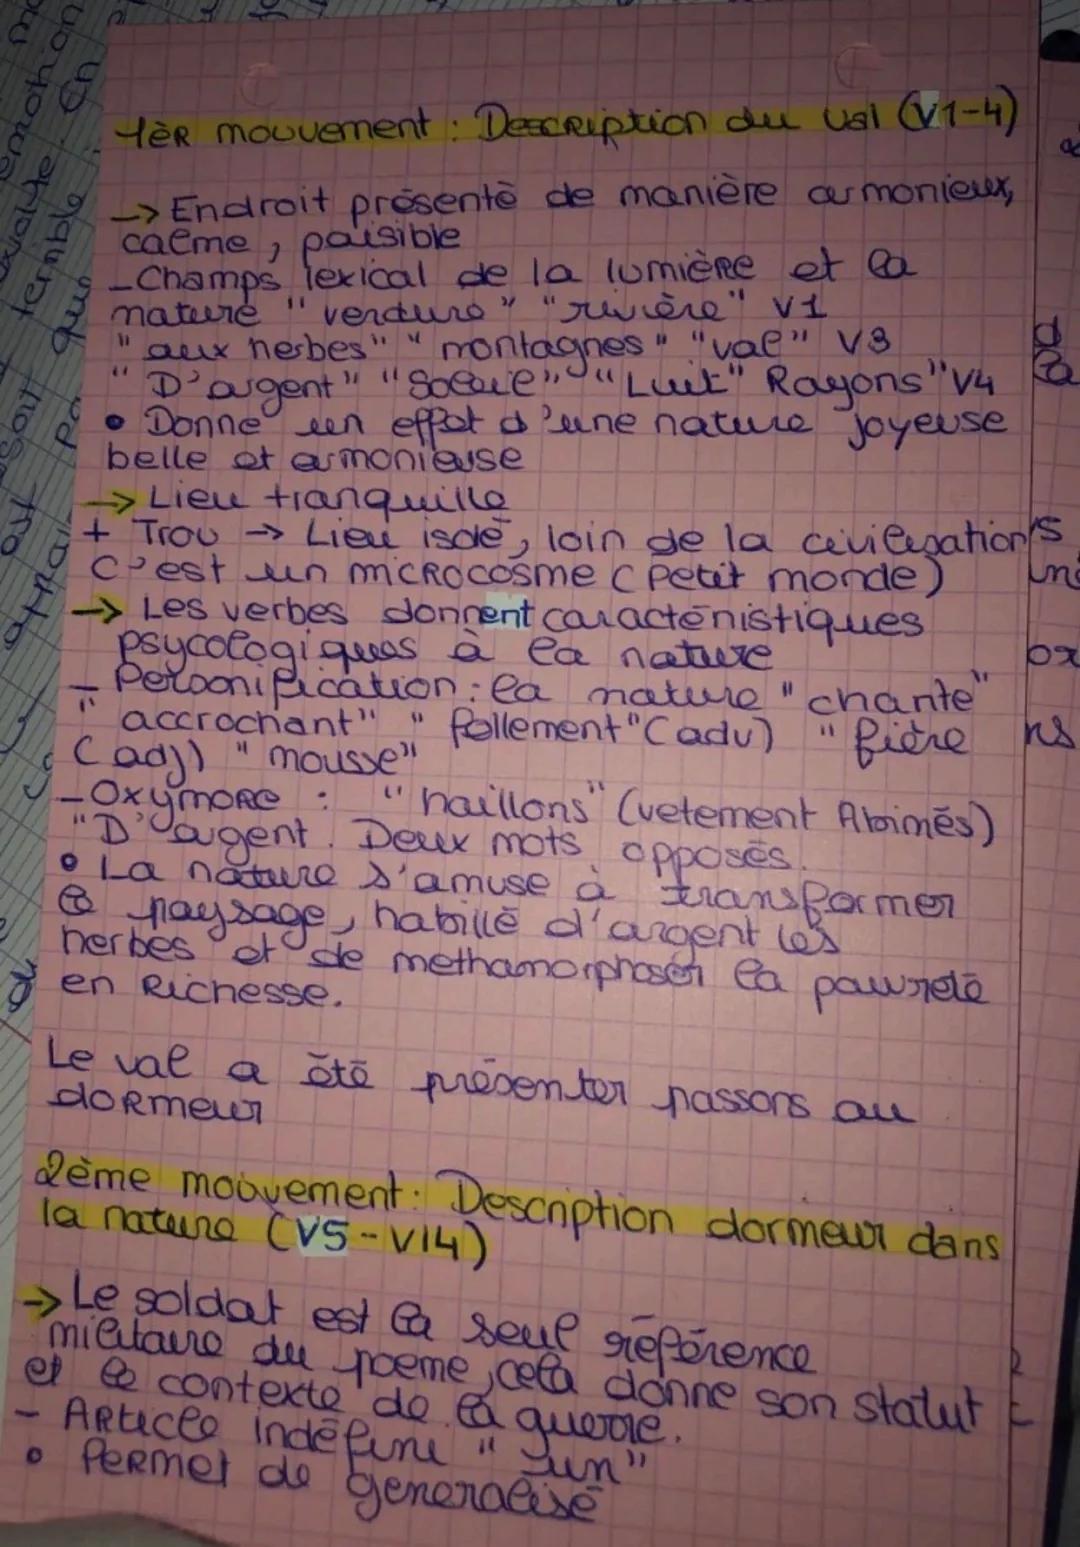 1èR mouvement : Description du val (V1-4)
-> Endroit présenté de manière armonieux,
calme, paisible
- Champs lexical de la lumière et la
nature "verdure" "rivière" V1
"aux herbes" "montagnes" "val" V3
"D'argent" "Soleil" "Luit" Rayons" V4
• Donne un effet d'une nature joyeuse
belle et armonieuse
-> Lieu tranquille
+ Trou -> Lieu isolé, loin de la civilisation
C'est un microcosme (Petit monde)
-> Les verbes donnent caractéristiques
psycologiques à la nature
- Personification : la nature "chante"
"accrochant" "follement" (adv) "fière
(adj) "mousse"
- Oxymore : "haillons" (vetement Abimés)
"D'argent. Deux mots opposés.
• La nature s'amuse à transformer
le paysage, habillé d'argent les
herbes et de methamorphoser la pauvreté
en Richesse.
Le val a été présenter passons au
dormeur
2ème mouvement : Description dormeur dans
la nature (V5-V14)
-> Le soldat est la seul référence
militaire du poeme, cela donne son statut
et le contexte de la guerre.
- Article indéfini "un"
• Permet de generalisé